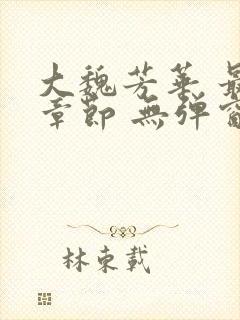 大魏芳華 最
章節 無彈窗
林東載